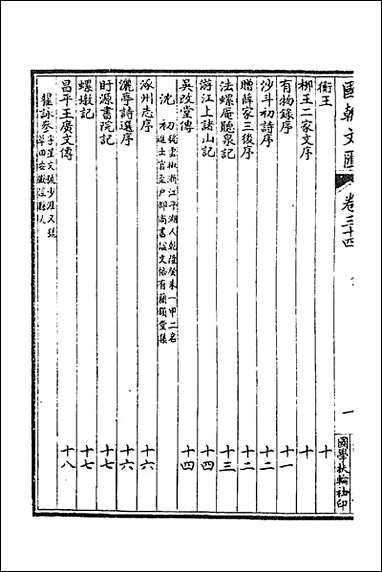 國朝文匯 卷三十四 一 國學扶輪社印
街王 十
柳王二家文序 十
有物錄序 十一
沙斗初詩序 十二
贈薛家三後序 十二
法螺庵聽泉記 十三
游江上諸山記 十四
吳改堂傳 十四
沈初 初字雲椒浙江平湖人乾隆癸未一甲二名進士官至戶部尚書諡文恪有蘭韻堂集
涿州志序 十六
儷亭詩選序 十六
盱源書院記 十七
螺墩記 十七
昌平王廣文傳 十八
翟詠參 字